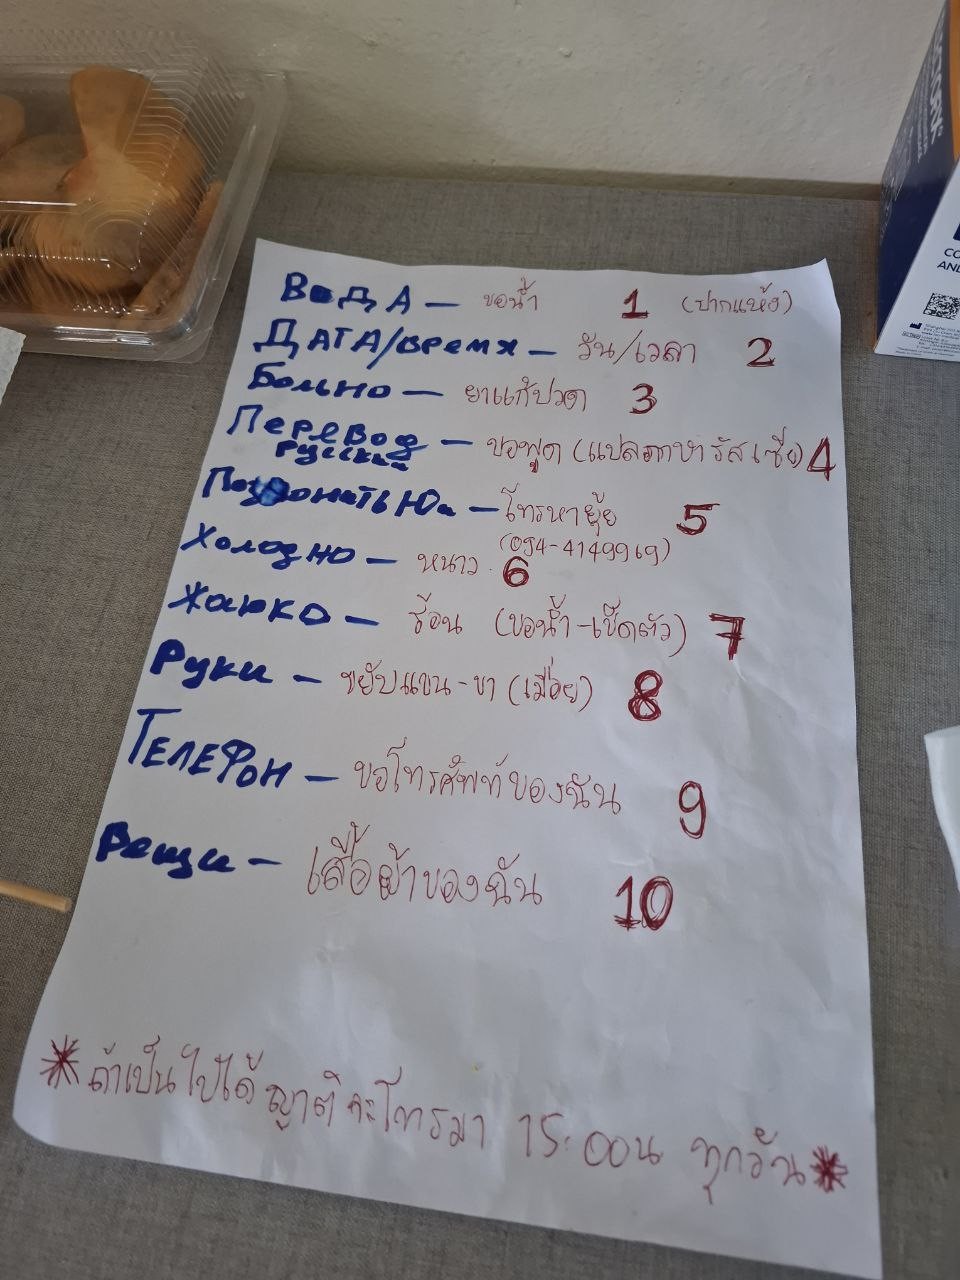 ВОДА — ขอน้ำ 1 (ปากแห้ง)
ДАТА/время — วัน/เวลา 2
Больно — ยาแก้ปวด 3
Перевод русский — ขอพูด (แปลภาษารัสเซีย) 4
Позвонить Юа — โทรหายุ้ย 5
(094-4149969)
Холодно — หนาว 6
Жарко — ร้อน (ขอน้ำ-เช็ดตัว) 7
Руки — ขยับแขน-ขา (เมื่อย) 8
ТЕЛЕФОН — ขอโทรศัพท์ของฉัน 9
Вещи — เสื้อผ้าของฉัน 10
* ถ้าเป็นไปได้ ญาติจะโทรมา 15:00น ทุกวัน *